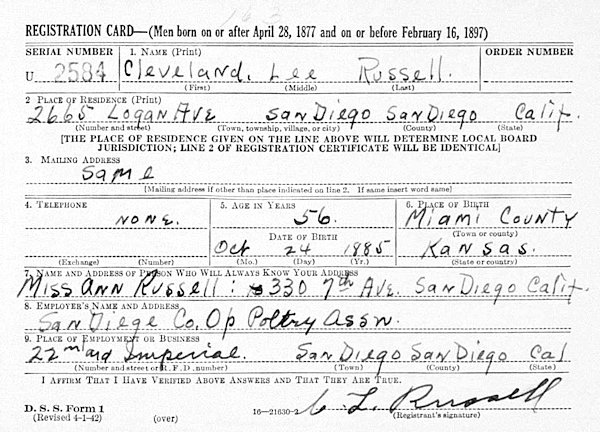 REGISTRATION CARD—(Men born on or after April 28, 1877 and on or before February 16, 1897)
SERIAL NUMBER 1. NAME (Print) ORDER NUMBER
U 2584 Cleveland. Lee Russell.
(First) (Middle) (Last)
2 PLACE OF RESIDENCE (Print)
2665 Logan Ave San Diego San Diego Calif.
(Number and street) (Town, township, village, or city) (County) (State)
[THE PLACE OF RESIDENCE GIVEN ON THE LINE ABOVE WILL DETERMINE LOCAL BOARD
JURISDICTION; LINE 2 OF REGISTRATION CERTIFICATE WILL BE IDENTICAL]
3. MAILING ADDRESS
Same
[Mailing address if other than place indicated on line 2. If same insert word same]
4. TELEPHONE 5. AGE IN YEARS 6. PLACE OF BIRTH
none. 56. Miami County
DATE OF BIRTH (Town or county)
Oct 24 1885 Kansas.
(Exchange) (Number) (Mo.) (Day) (Yr.) (State or country)
7. NAME AND ADDRESS OF PERSON WHO WILL ALWAYS KNOW YOUR ADDRESS
Miss Ann Russell: 330 7th Ave. San Diego Calif.
8. EMPLOYER'S NAME AND ADDRESS
San Diege Co. Op Poltry Assn.
9. PLACE OF EMPLOYMENT OR BUSINESS
22nd Imperial. San Diego San Diego Cal
(Number and street or R. F. D. number) (Town) (County) (State)
I AFFIRM THAT I HAVE VERIFIED ABOVE ANSWERS AND THAT THEY ARE TRUE.
D. S. S. Form 1 C L. Russell
(Revised 4-1-42) (over) 16—21630-2 (Registrant's signature)